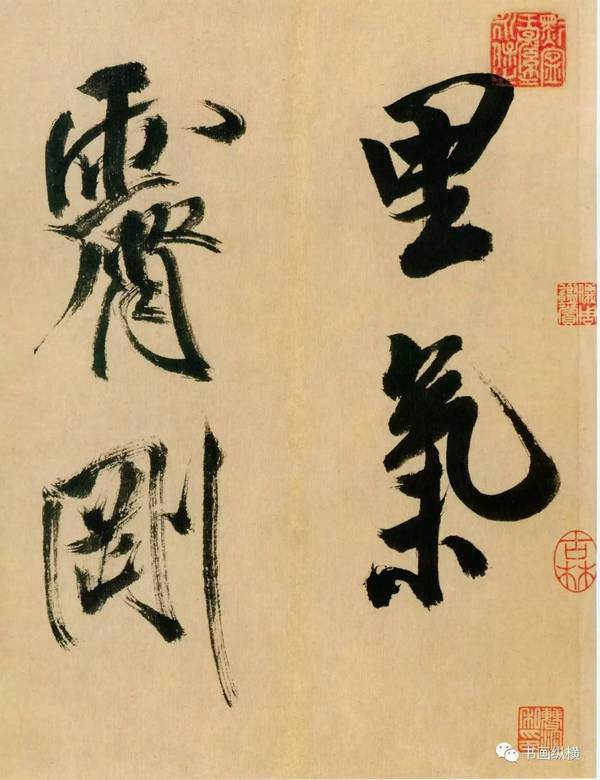 里氣
霽剛
古林
书画纵横